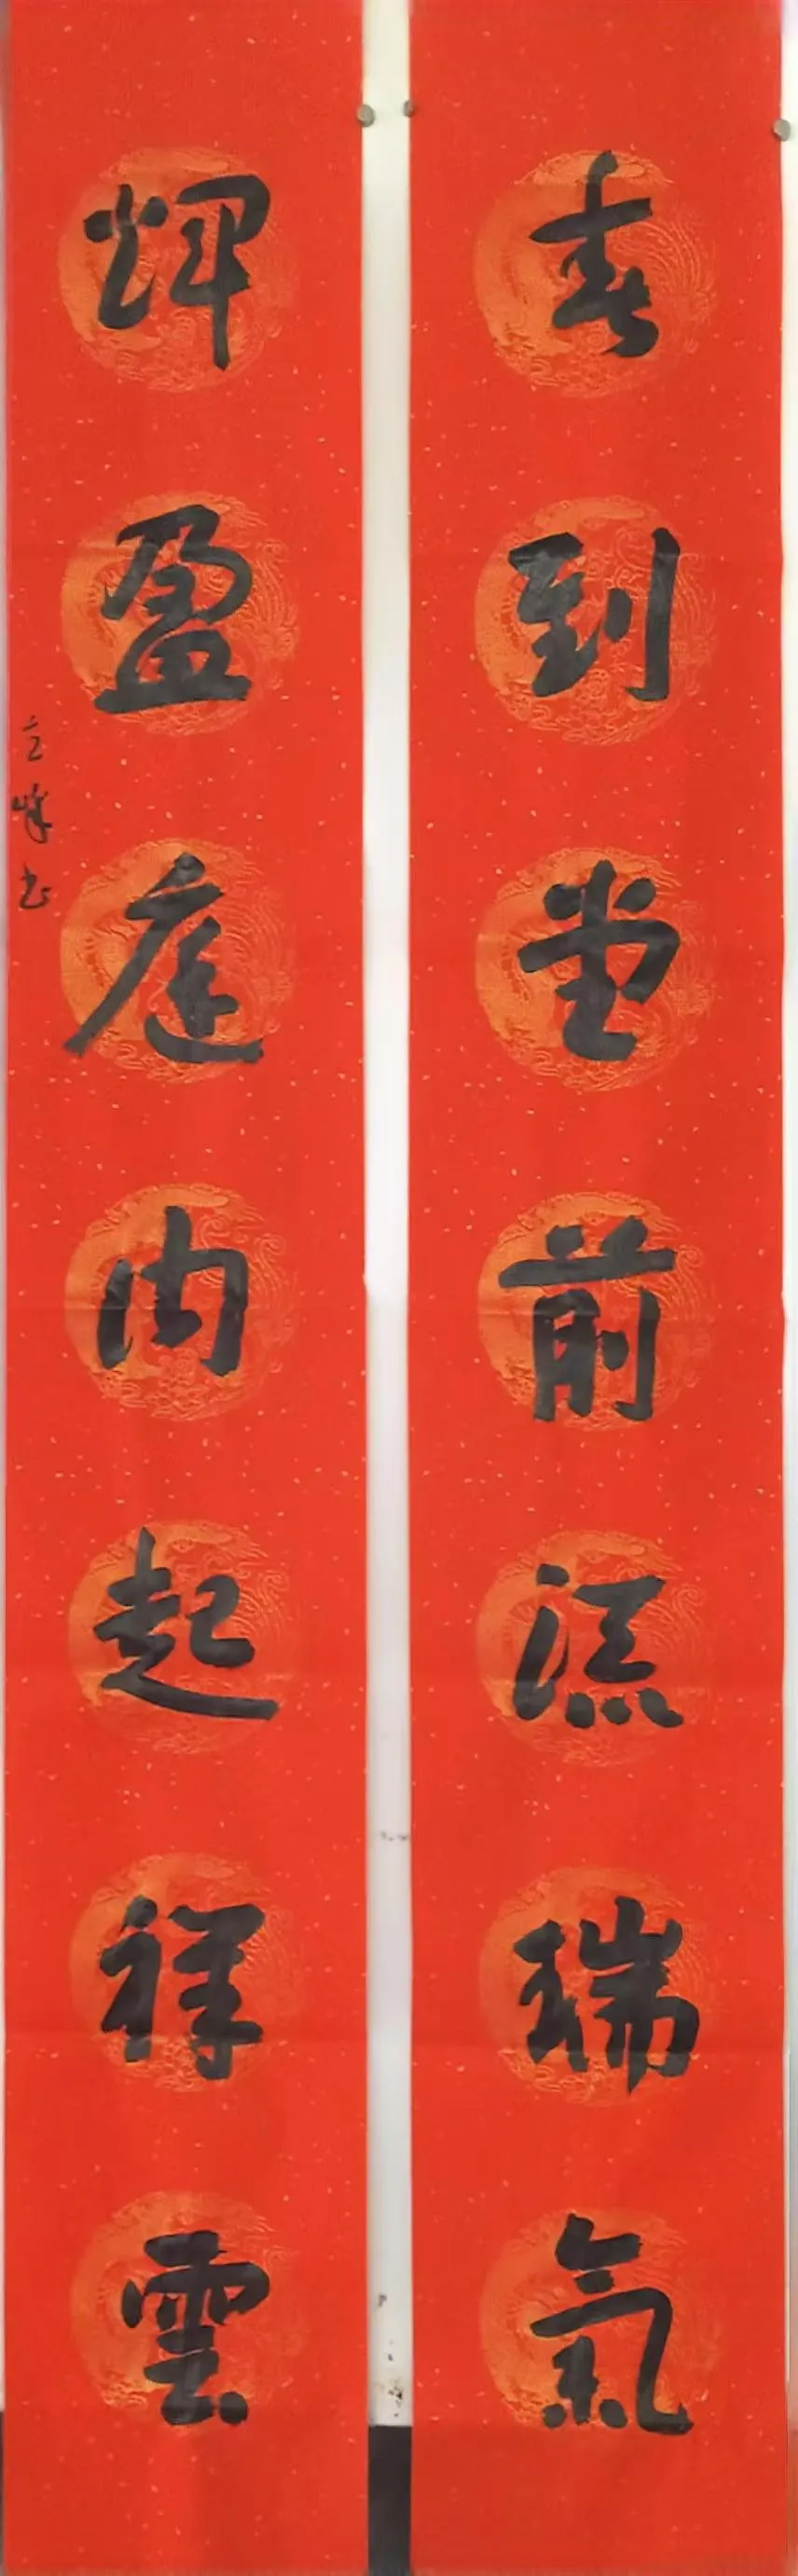 春到堂前流瑞氣
輝盈庭内起祥雲
立峰书